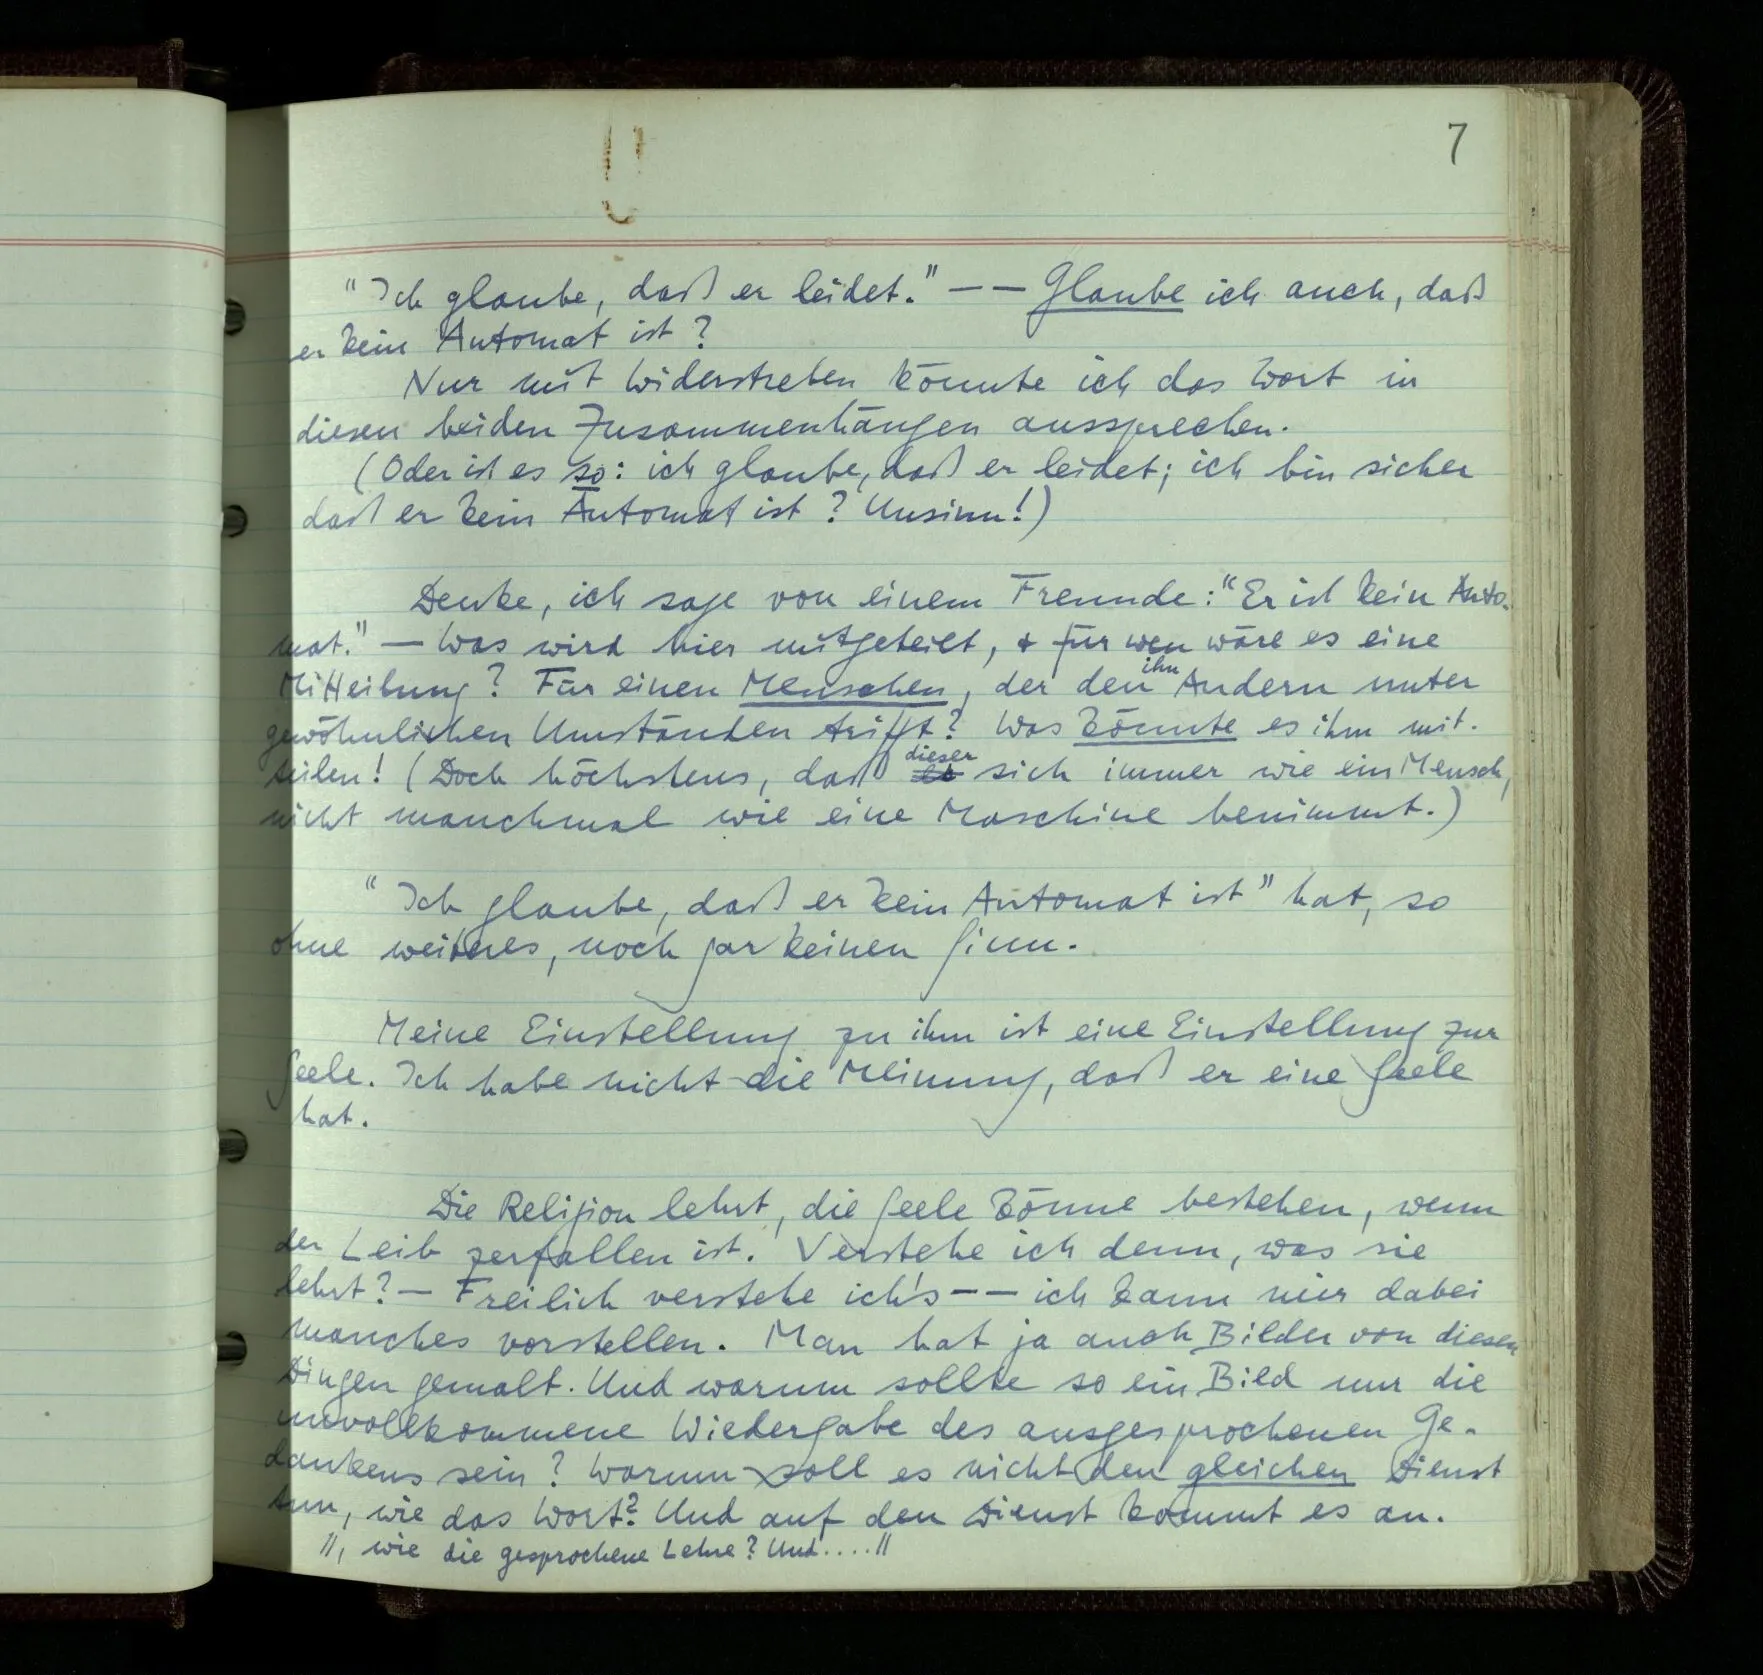 7
"Ich glaube, daß er leidet." — — Glaube ich auch, daß
er kein Automat ist?
Nur mit Widerstreben könnte ich das Wort in
diesen beiden Zusammenhängen aussprechen.
(Oder ist es so: ich glaube, daß er leidet; ich bin sicher
daß er kein Automat ist? Unsinn!)
Denke, ich sage von einem Freunde: "Er ist kein Auto-
mat." — Was wird hier mitgeteilt, & für wen wäre es eine
Mitteilung? Für einen Menschen, der den Andern unter
ihn
gewöhnlichen Umständen trifft? Was könnte es ihm mit-
teilen! (Doch höchstens, daß dieser sich immer wie ein Mensch,
nicht manchmal wie eine Maschine benimmt.)
"Ich glaube, daß er kein Automat ist" hat, so
ohne weiteres, noch gar keinen Sinn.
Meine Einstellung zu ihm ist eine Einstellung zur
Seele. Ich habe nicht die Meinung, daß er eine Seele
hat.
Die Religion lehrt, die Seele könne bestehen, wenn
der Leib zerfallen ist. Verstehe ich denn, was sie
lehrt? — Freilich verstehe ich's — — ich kann mir dabei
manches vorstellen. Man hat ja auch Bilder von diesen
Dingen gemalt. Und warum sollte so ein Bild nur die
unvollkommene Wiedergabe des ausgesprochenen Ge-
dankens sein? Warum soll es nicht den gleichen Dienst
tun, wie das Wort? Und auf den Dienst kommt es an.
//, wie die gesprochene Lehre? Und....//